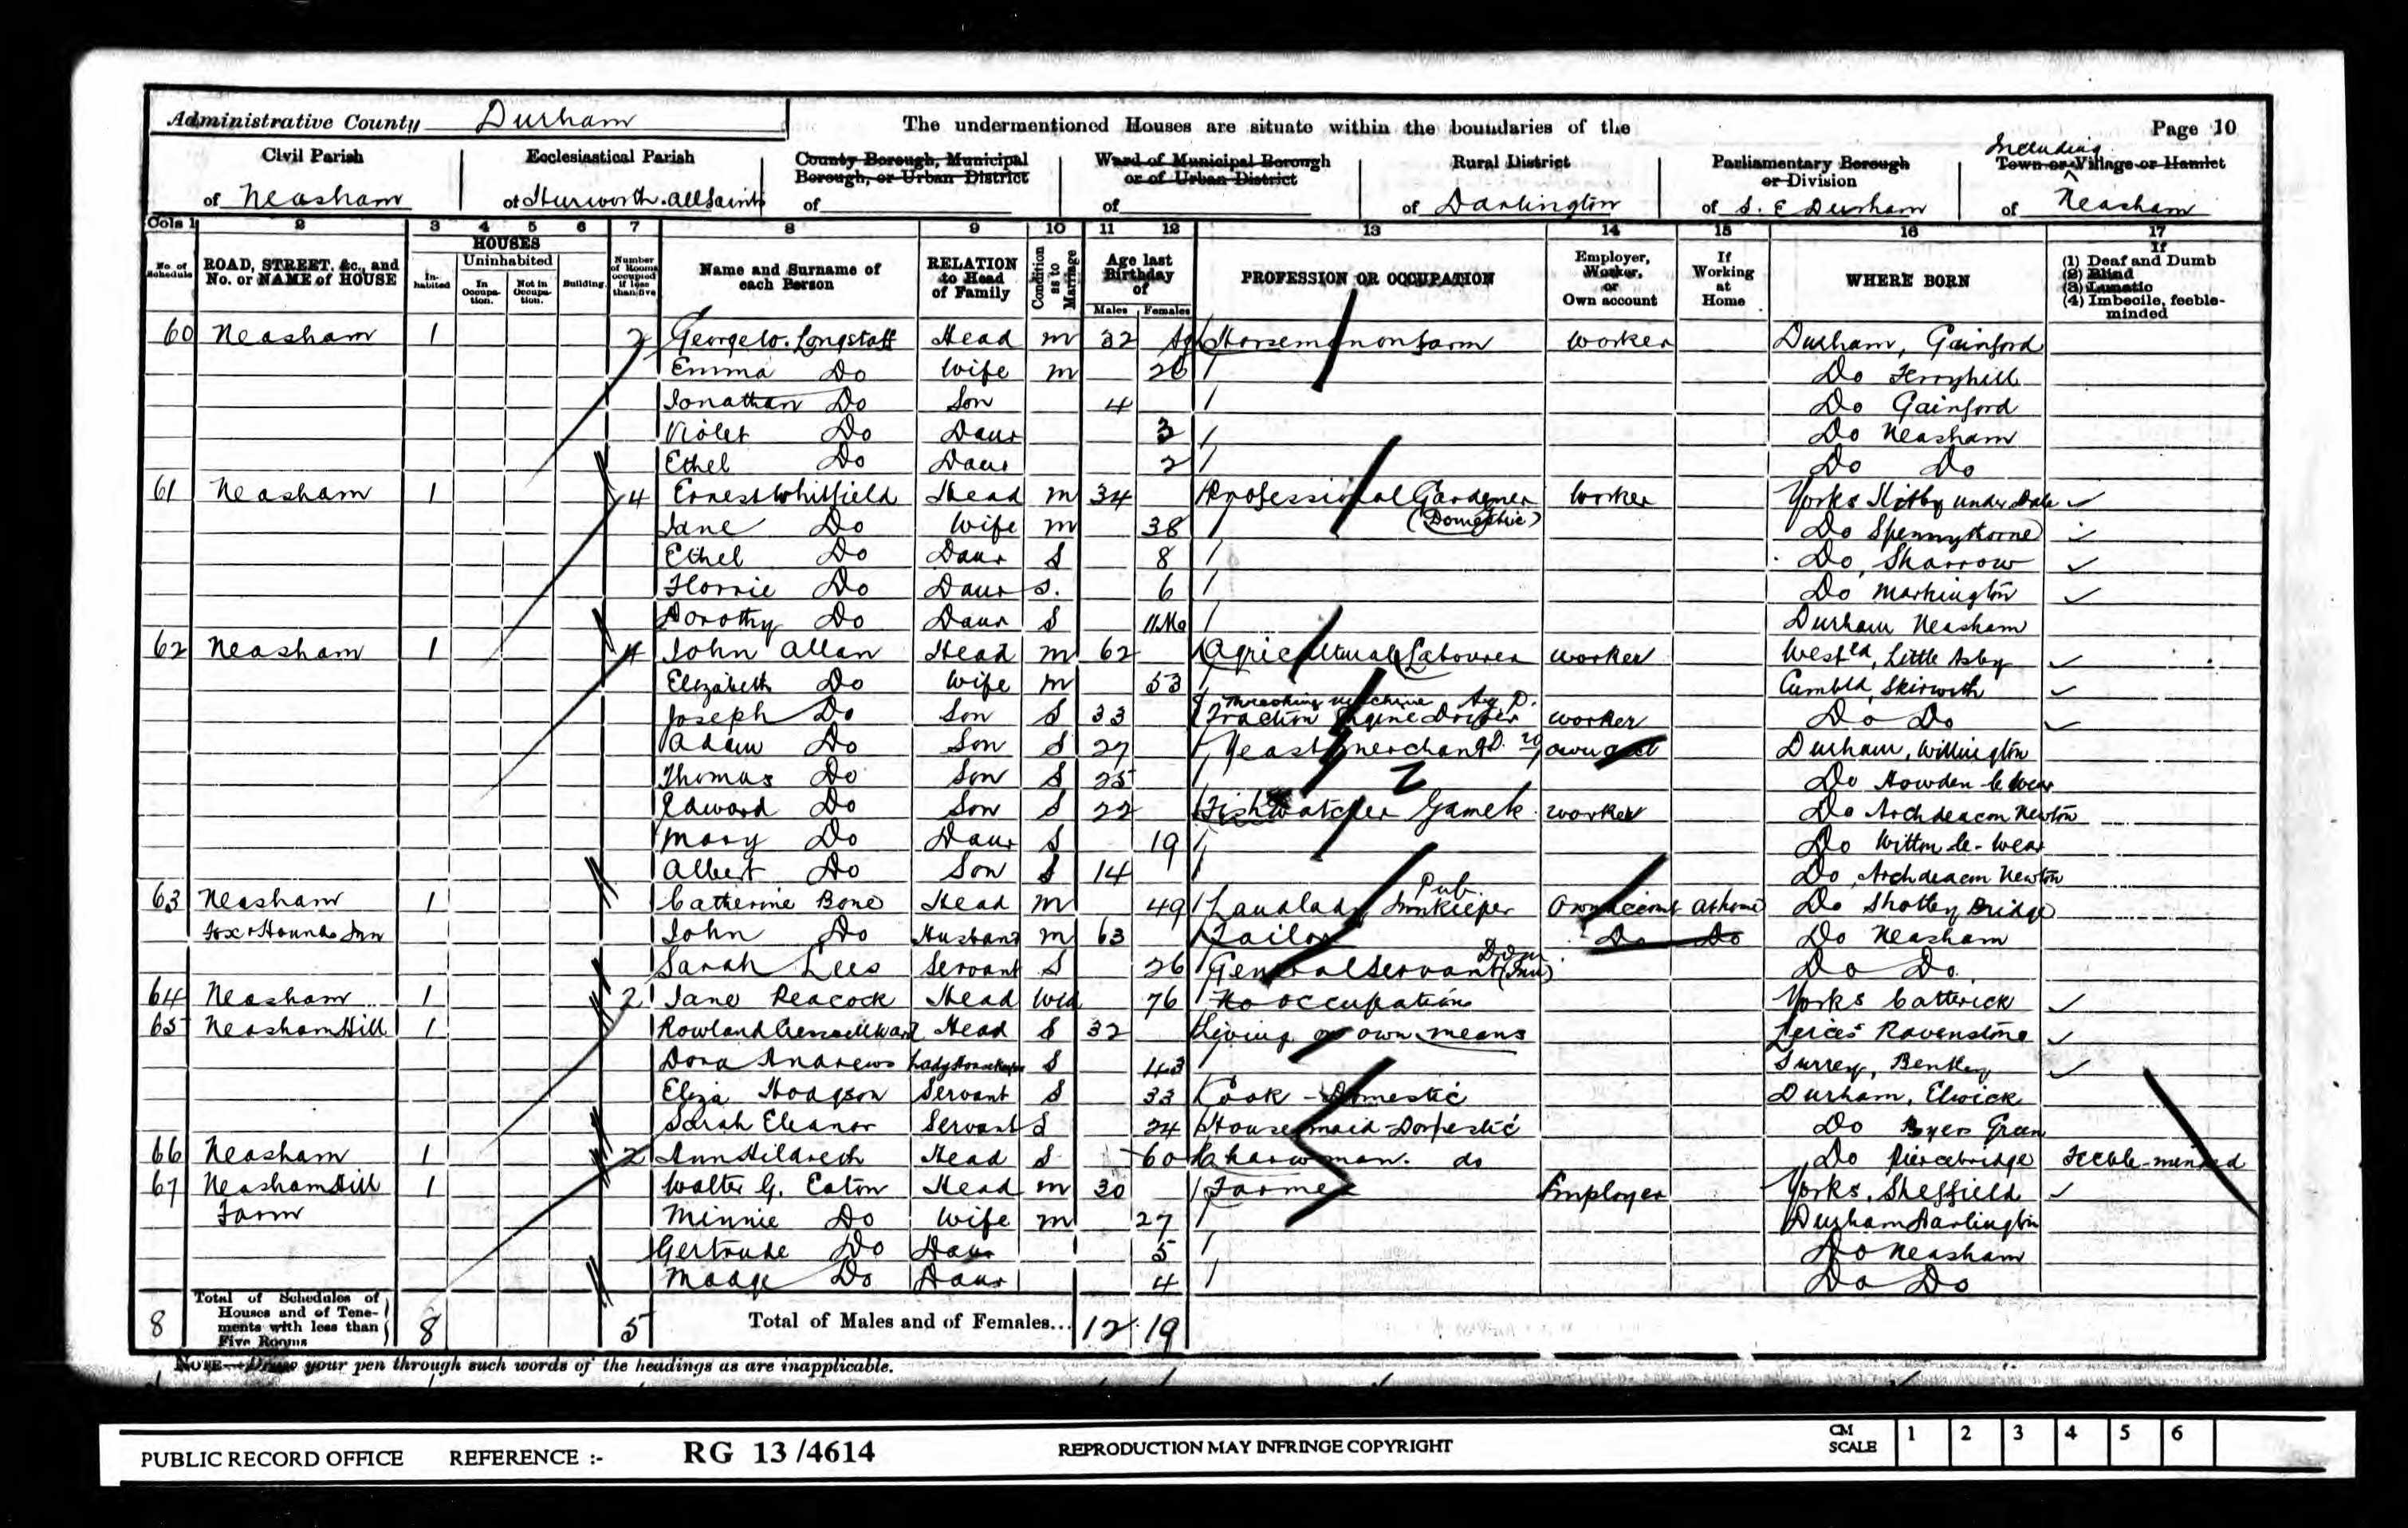 Administrative County Durham
The undermentioned Houses are situate within the boundaries of the
Page 10
Civil Parish of Neasham
Ecclesiastical Parish of Hurworth. All Saints
County Borough, Municipal Borough, or Urban District of
Ward of Municipal Borough or of Urban District of
Rural District of Darlington
Parliamentary Borough or Division of S. E Durham
Including
Town or Village or Hamlet of Neasham
Cols 1 2 3 4 5 6 7 8 9 10 11 12 13 14 15 16 17
No. of Schedule
ROAD, STREET, &c., and No. or NAME of HOUSE
HOUSES
In-habited
Uninhabited
In Occupa-tion.
Not in Occupa-tion.
Building.
Number of Rooms occupied if less than five
Name and Surname of each Person
RELATION to Head of Family
Condition as to Marriage
Age last Birthday of
Males Females
PROFESSION OR OCCUPATION
Employer, Worker, or Own account
If Working at Home
WHERE BORN
If (1) Deaf and Dumb (2) Blind (3) Lunatic (4) Imbecile, feeble-minded
60 Neasham 1 2 George W. Longstaff Head m 32 Ag Horseman on farm worker Durham, Gainford
Emma Do Wife m 26 Do Ferryhill
Jonathan Do Son 4 Do Gainford
Violet Do Daur 3 Do Neasham
Ethel Do Daur 2 Do Do
61 Neasham 1 4 Ernest Whitfield Head m 34 Professional Gardener worker Yorks Kirby under Dale
(Domestic)
Jane Do Wife m 38 Do Spennythorne
Ethel Do Daur S 8 Do, Sharrow
Florrie Do Daur S. 6 Do Markington
Dorothy Do Daur S 11Mo Durham Neasham
62 Neasham 1 4 John Allan Head m 62 Agricultural Labourer worker Westld, Little Asby
Elizabeth Do Wife m 53 Cumbld, Skirwith
Threshing Machine Ag D.
Joseph Do Son S 33 Traction Engine Driver worker Do Do
Adam Do Son S 27 Yeast Merchant D. own acct Durham, Willington
Thomas Do Son S 25 Do Howden-le Wear
Edward Do Son S 22 Fish Watcher Gamek worker Do Archdeacon Newton
Mary Do Daur S 19 Do Witton le-Wear
Albert Do Son S 14 Do, Archdeacon Newton
Pub.
63 Neasham 1 Catherine Bone Head m 49 Landlady Innkeeper Own account at home Do Shotley Bridge
Fox & Hounds Inn John Do Husband m 63 Tailor Do Do Do Neasham
Dom
Sarah Lees Servant S 26 General Servant (Inn) Do Do
64 Neasham 1 2 Jane Peacock Head Wid 76 No occupation Yorks Catterick
65 Neasham Hill 1 Rowland Head S 32 Living on own means Leics Ravenstone
Dora Andrews Lady Housekeeper S 43 Surrey, Bentley
Eliza Hodgson Servant S 33 Cook - Domestic Durham, Elwick
Sarah Eleanor Servant S 24 House maid-Domestic Do Byers Green
66 Neasham 1 2 Ann Hildreth Head S 60 Charwoman. do Do Piercebridge Feeble-minded
67 Neasham Hill 1 Walter G. Eaton Head m 30 Farmer Employer Yorks, Sheffield
Farm Minnie Do Wife m 27 Durham Darlington
Gertrude Do Daur 5 Do Neasham
Madge Do Daur 4 Do Do
8 Total of Schedules of Houses and of Tene-ments with less than Five Rooms 8 5 Total of Males and of Females... 12 19
NOTE—Draw your pen through such words of the headings as are inapplicable.
PUBLIC RECORD OFFICE REFERENCE :- RG 13 /4614 REPRODUCTION MAY INFRINGE COPYRIGHT CM SCALE 1 2 3 4 5 6